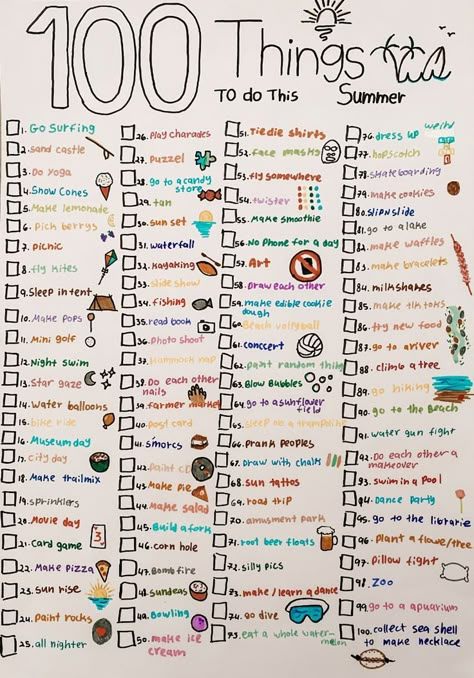 100 Things
TO do This Summer
1. Go Surfing
2. sand castle
3. Do yoga
4. Snow Cones
5. Make lemonade
6. Pick berrys
7. picnic
8. fly kites
9. Sleep in tent
10. Make Pops
11. Mini golf
12. Night swim
13. Star gaze
14. Water balloons
15. bike ride
16. Museum day
17. city day
18. Make trailmix
19. sprinklers
20. Movie day
21. Card game
3
22. Make Pizza
23. sun rise
24. Paint rocks
25. all nighter
26. Play charades
27. Puzzel
28. go to a candy
store
29. tan
30. Sun set
31. waterfall
32. Kayaking
33. slide show
34. fishing
35. read book
36. Photo shoot
37. Hammock nap
38. Do each other
nails
39. farmer market
40. post card
41. Smorcs
42. Paint CD
43. Make Pie
44. Make salad
45. Build a fork
46. corn hole
47. Bomb fire
48. sundeas
49. Bowling
50. make ice
cream
51. Tiedie shirts
52. face masks
53. fly somewhere
54. twister
55. Make smoothie
56. No Phone for a day
57. Art
58. Draw each other
59. make edible cookie
dough
60. Beach vollyball
61. concert
62. paint random thing
63. Blow Bubbles
64. go to a sunflower
field
65. sleep on a trampoline
66. Prank peoples
67. Draw with chalk
68. Sun tattos
69. road trip
70. amusment park
71. root beer floats
72. silly pics
73. make/learn a dance
74. Go dive
75. eat a whole water-
melon
76. dress up weird
77. hopscotch
78. skateboarding
79. make cookies
80. slip n slide
81. go to a lake
82. make waffles
83. make bracelets
84. milkshakes
85. make tiktoks
86. try new food
87. go to a river
88. climb a tree
89. go hiking
90. go to the Beach
91. water gun fight
92. Do each other a
makeover
93. swim in a Pool
94. Dance party
95. go to the librarie
96. Plant a flowe/tree
97. Pillow fight
98. Zoo
99. go to a apuarium
100. collect sea shell
to make necklace